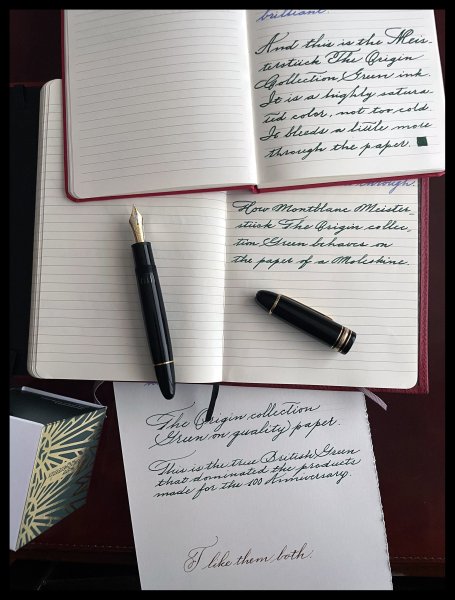 brilliant.
And this is the Meis-
terstück The Origin
Collection Green ink.
It is a highly satura-
ted color, not too cold.
It bleeds a little more
through the paper.
through.
How Montblanc Meister-
stück The Origin collec-
tion Green behaves on
the paper of a Moleskine.
The Origin collection
Green on quality paper.
This is the true British Green
that dominated the products
made for the 100 Anniversary.
I like them both.